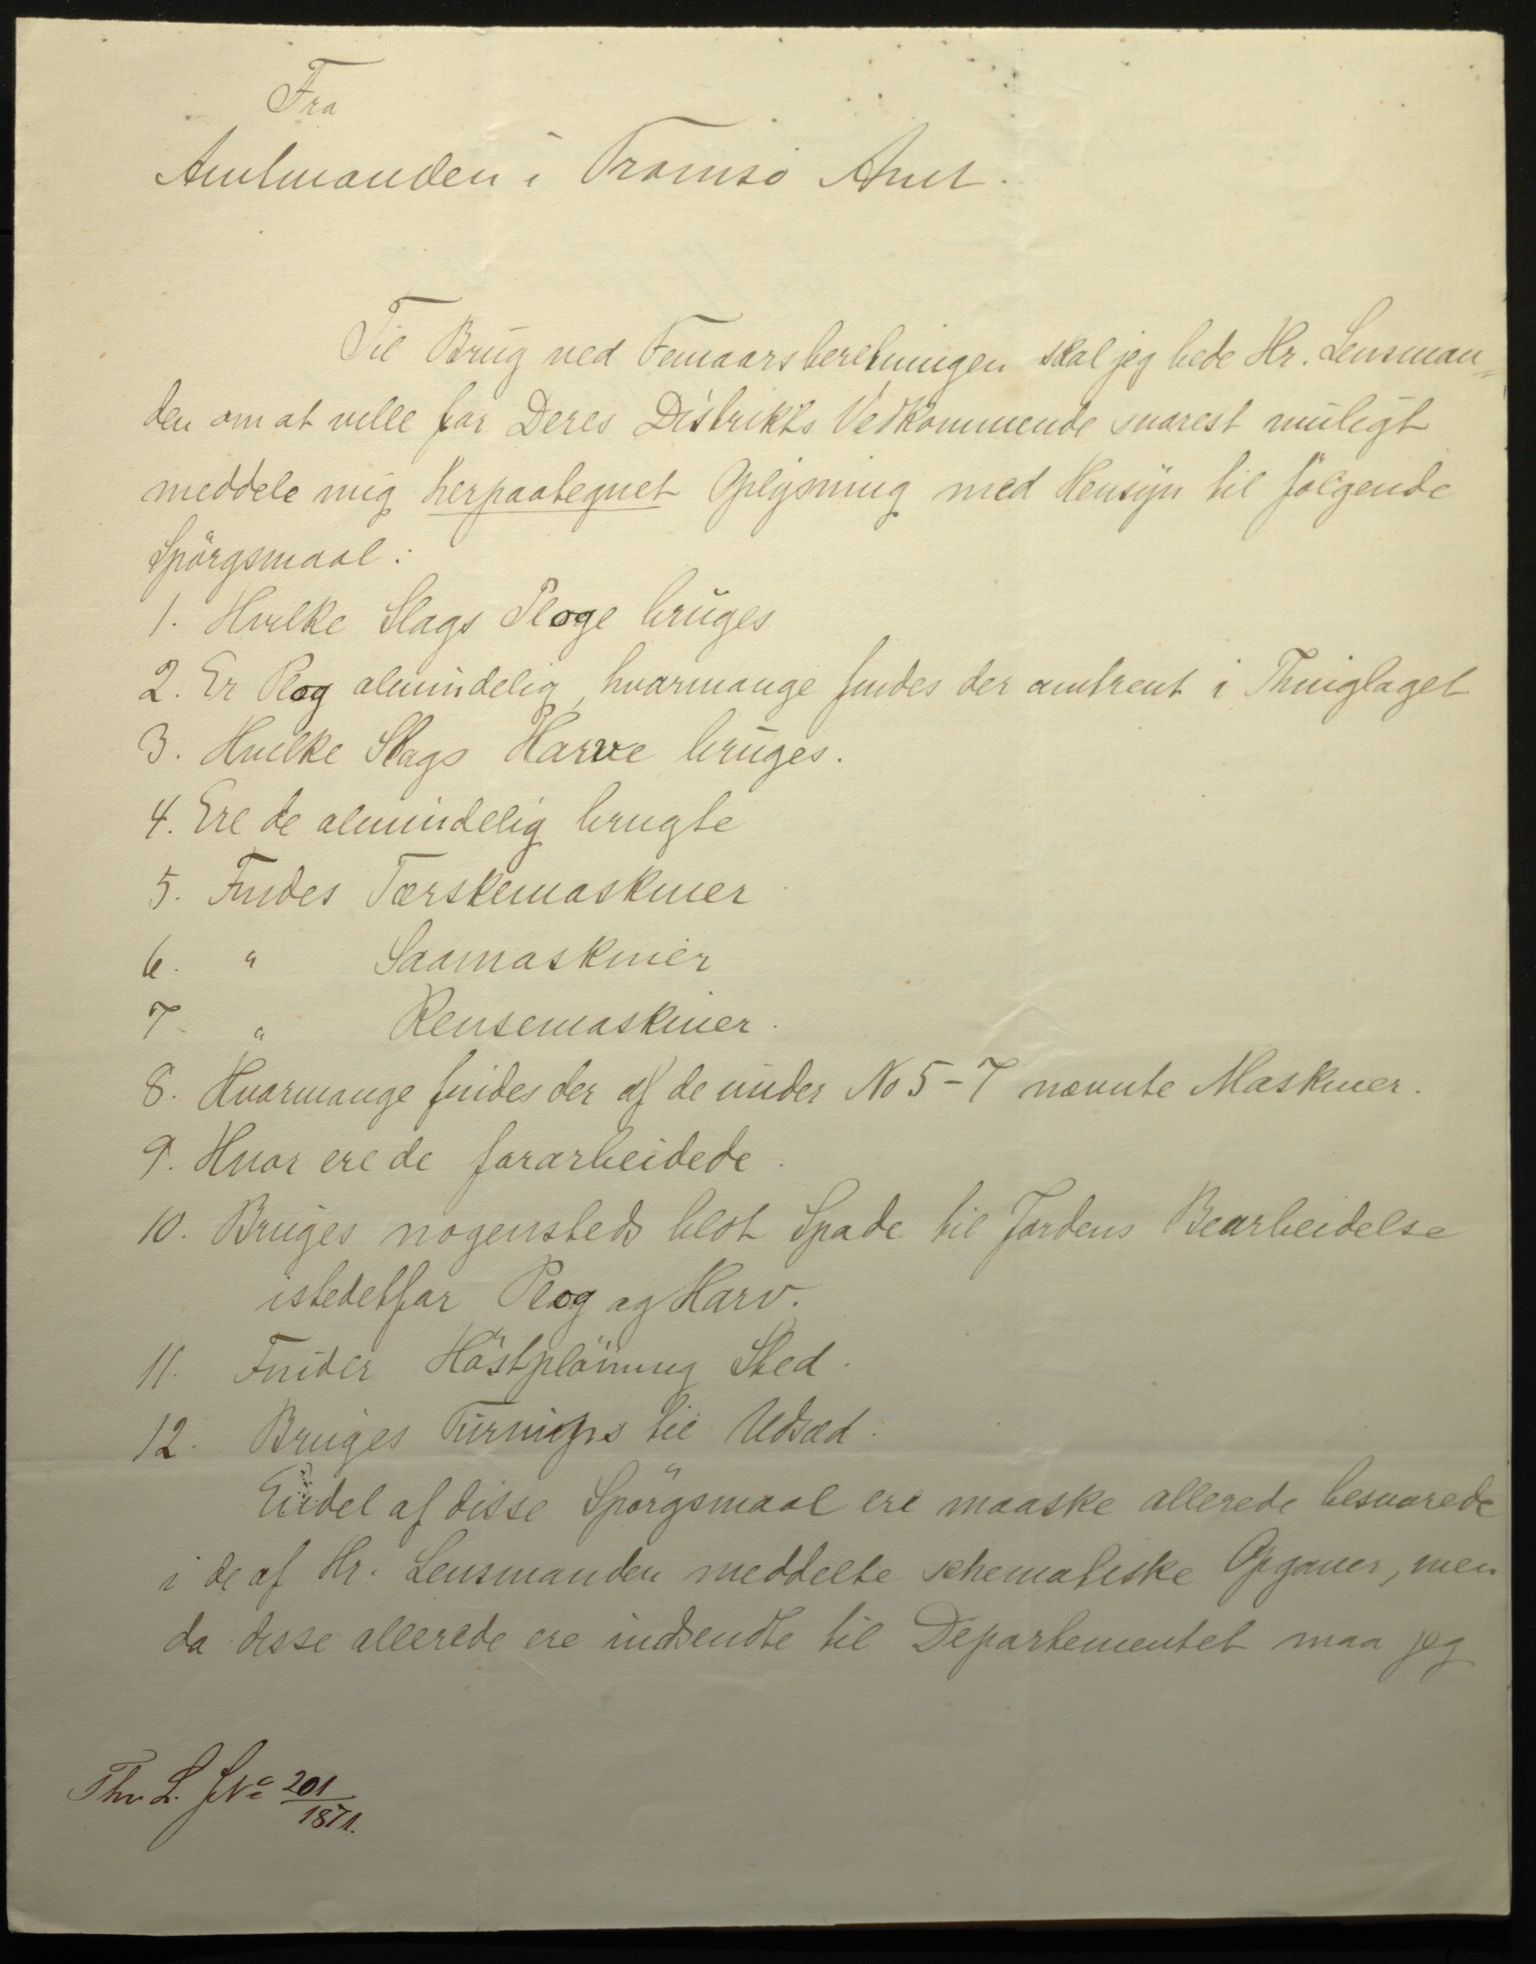 Fra
Amtmanden i Tromsø Amt.
Til Brug ved Femaarsberetningen skal jeg bede Hr. Lensman-
den om at ville for Deres Distrikts Vedkommende snarest muligt
meddele mig herpaategnet Oplysning med Hensyn til følgende
Spørgsmaal:
1. Hvilke Slags Ploge bruges
2. Er Plog almindelig, hvormange findes der omtrent i Thinglaget
3. Hvilke Slags Harve bruges.
4. Ere de almindelig brugte
5. Findes Tærskemaskiner
6. " Saamaskiner
7 " Rensemaskiner.
8. Hvormange findes der af de under No 5-7 nævnte Maskiner.
9. Hvor ere de forarbeidede.
10. Bruges nogensteds blot Spade til Jordens Bearbeidelse
istedetfor Plog og Harv.
11. Finder Høstpløining Sted.
12. Bruges Turnips til Udsæd.
Endel af disse Spørgsmaal ere maaske allerede besvarede
i de af Hr. Lensmanden meddelte schematiske Opgaver, men
da disse allerede ere indsendte til Departementet maa jeg
Thr L. J No 201/1871.